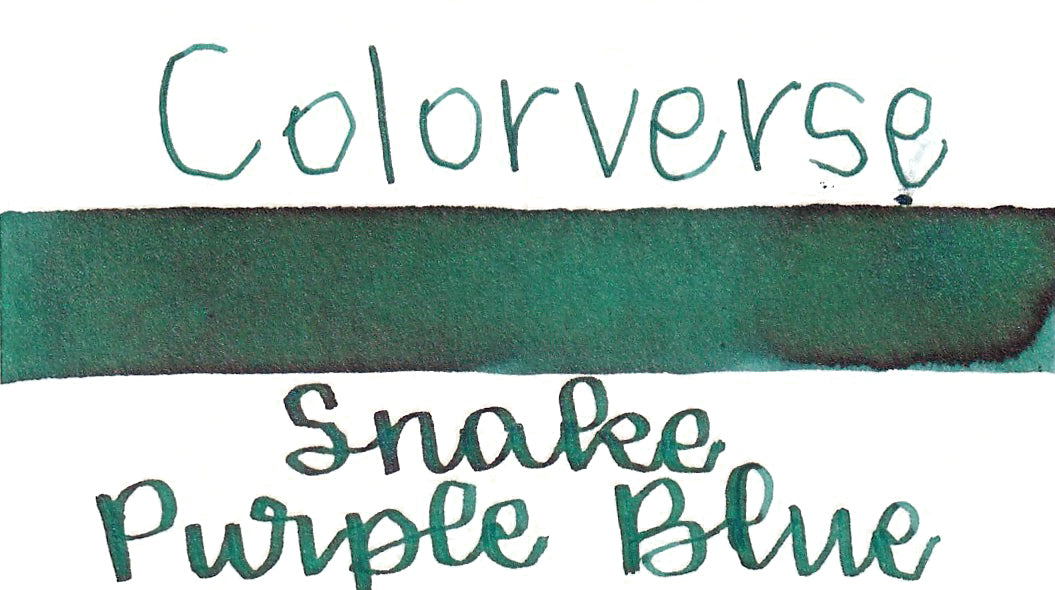 Colorverse
Snake
Purple Blue